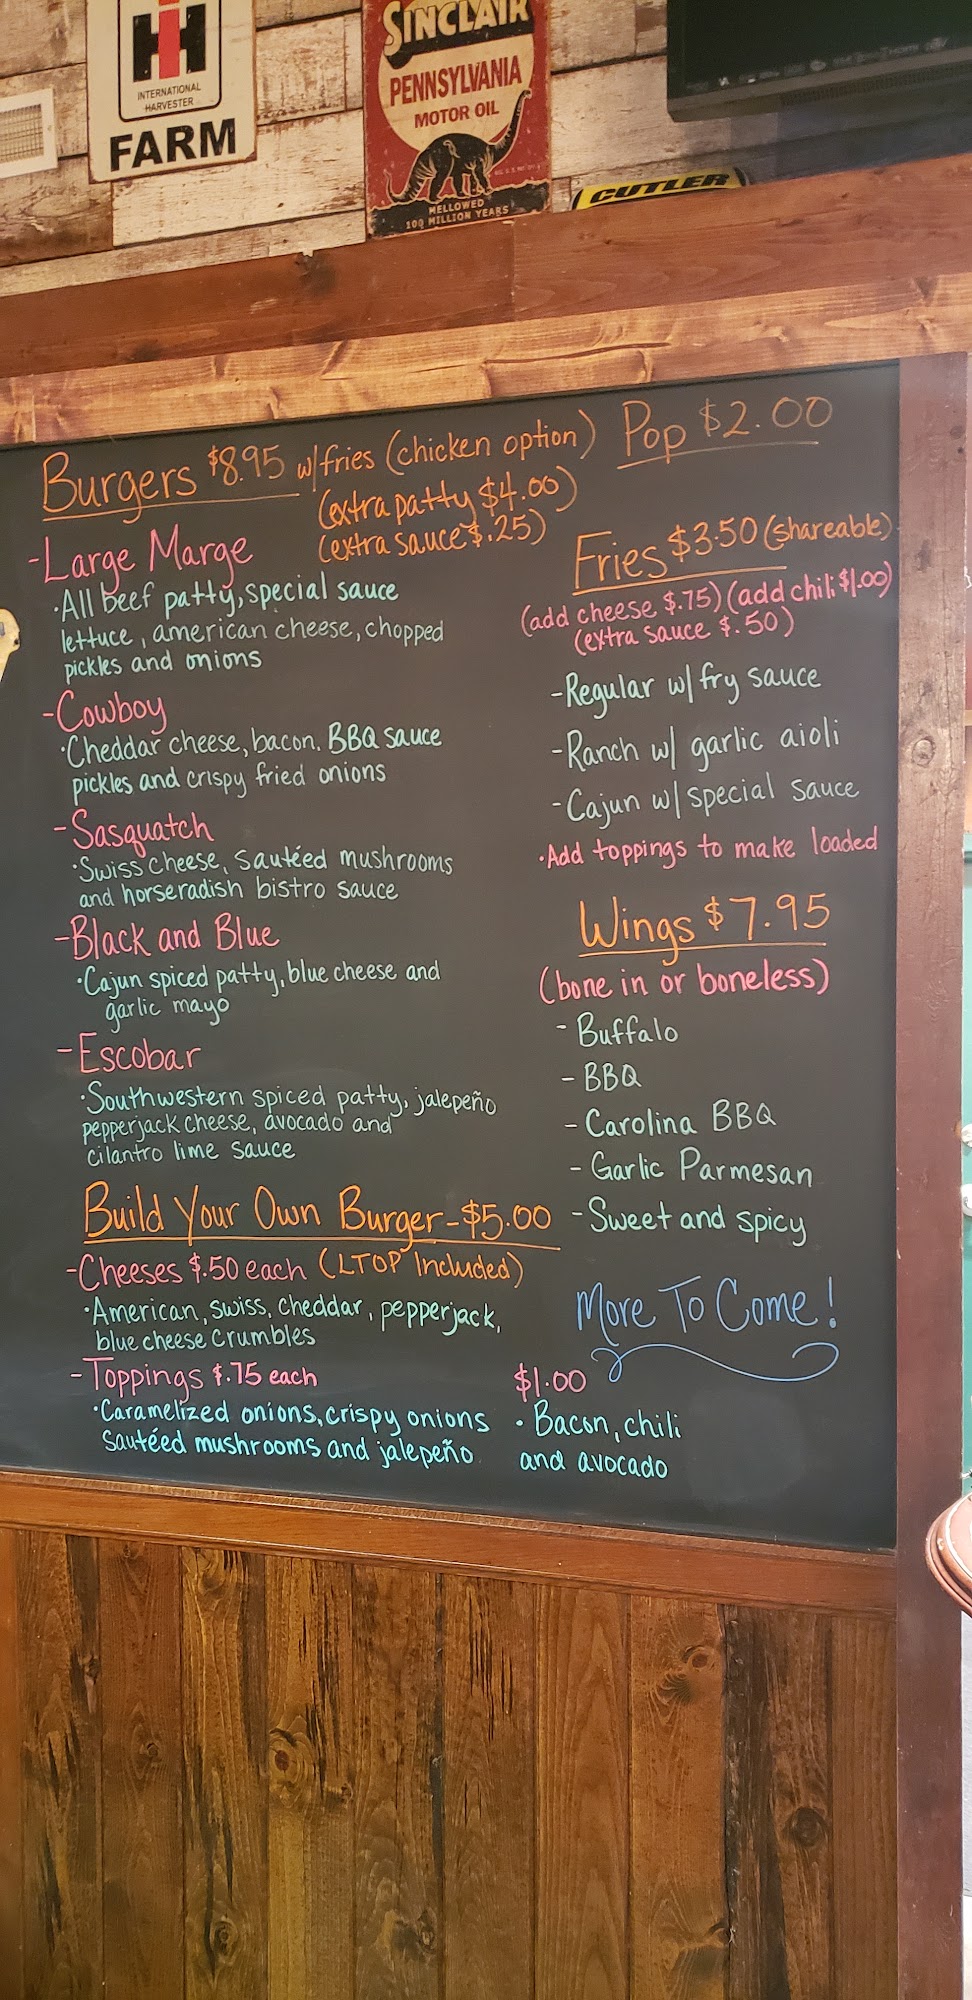 INTERNATIONAL
HARVESTER
FARM
SINCLAIR
PENNSYLVANIA
MOTOR OIL
MELLOWED
100 MILLION YEARS
CUTLER
Burgers $8.95 w/fries (chicken option)
(extra patty $4.00)
(extra sauce $.25)
-Large Marge
·All beef patty, special sauce
lettuce, american cheese, chopped
pickles and onions
-Cowboy
·Cheddar cheese, bacon. BBQ sauce
pickles and crispy fried onions
-Sasquatch
·Swiss cheese, sautéed mushrooms
and horseradish bistro sauce
-Black and Blue
·Cajun spiced patty, blue cheese and
garlic mayo
-Escobar
·Southwestern spiced patty, jalepeño
pepperjack cheese, avocado and
cilantro lime sauce
Build Your Own Burger-$5.00
-Cheeses $.50 each (LTOP Included)
·American, swiss, cheddar, pepperjack,
blue cheese crumbles
-Toppings $.75 each
·Caramelized onions, crispy onions
sautéed mushrooms and jalepeño
$1.00
·Bacon, chili
and avocado
Pop $2.00
Fries $3.50 (shareable)
(add cheese $.75) (add chili $1.00)
(extra sauce $.50)
-Regular w/ fry sauce
-Ranch w/ garlic aioli
-Cajun w/ special sauce
·Add toppings to make loaded
Wings $7.95
(bone in or boneless)
- Buffalo
- BBQ
- Carolina BBQ
- Garlic Parmesan
-Sweet and spicy
More To Come!